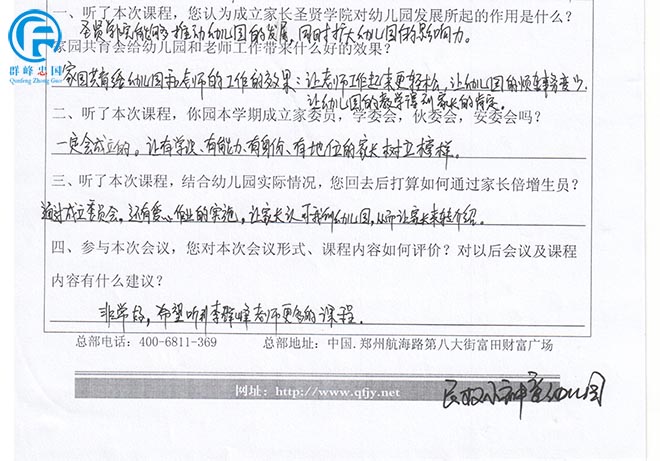 一、听了本次课程，您认为成立家长圣贤学院对幼儿园发展所起的作用是什么？
圣贤学院能够推动幼儿园的发展，同时扩大幼儿园的影响力。
家园共育会给幼儿园和老师工作带来什么好的效果？
家园共育给幼儿园和老师的工作的效果：让老师工作起来更轻松，让幼儿园的烦事变少，
让幼儿园的教学得到家长的肯定。
二、听了本次课程，你园本学期成立家委员，学委会，伙委会，安委会吗？
一定会成立的。让有学识、有能力、有身份、有地位的家长树立榜样。
三、听了本次课程，结合幼儿园实际情况，您回去后打算如何通过家长倍增生员？
通过成立委员会，还有爱心作业的实施，让家长认可我们幼儿园，从而让家长来转介绍。
四、参与本次会议，您对本次会议形式、课程内容如何评价？对以后会议及课程
内容有什么建议？
非常好，希望听到李群峰老师更多的课程。
总部电话：400-6811-369 总部地址：中国.郑州航海路第八大街富田财富广场
网址：http://www.qfjy.net
民权小神童幼儿园
群峰忠国
Qunfeng Zhong Guo